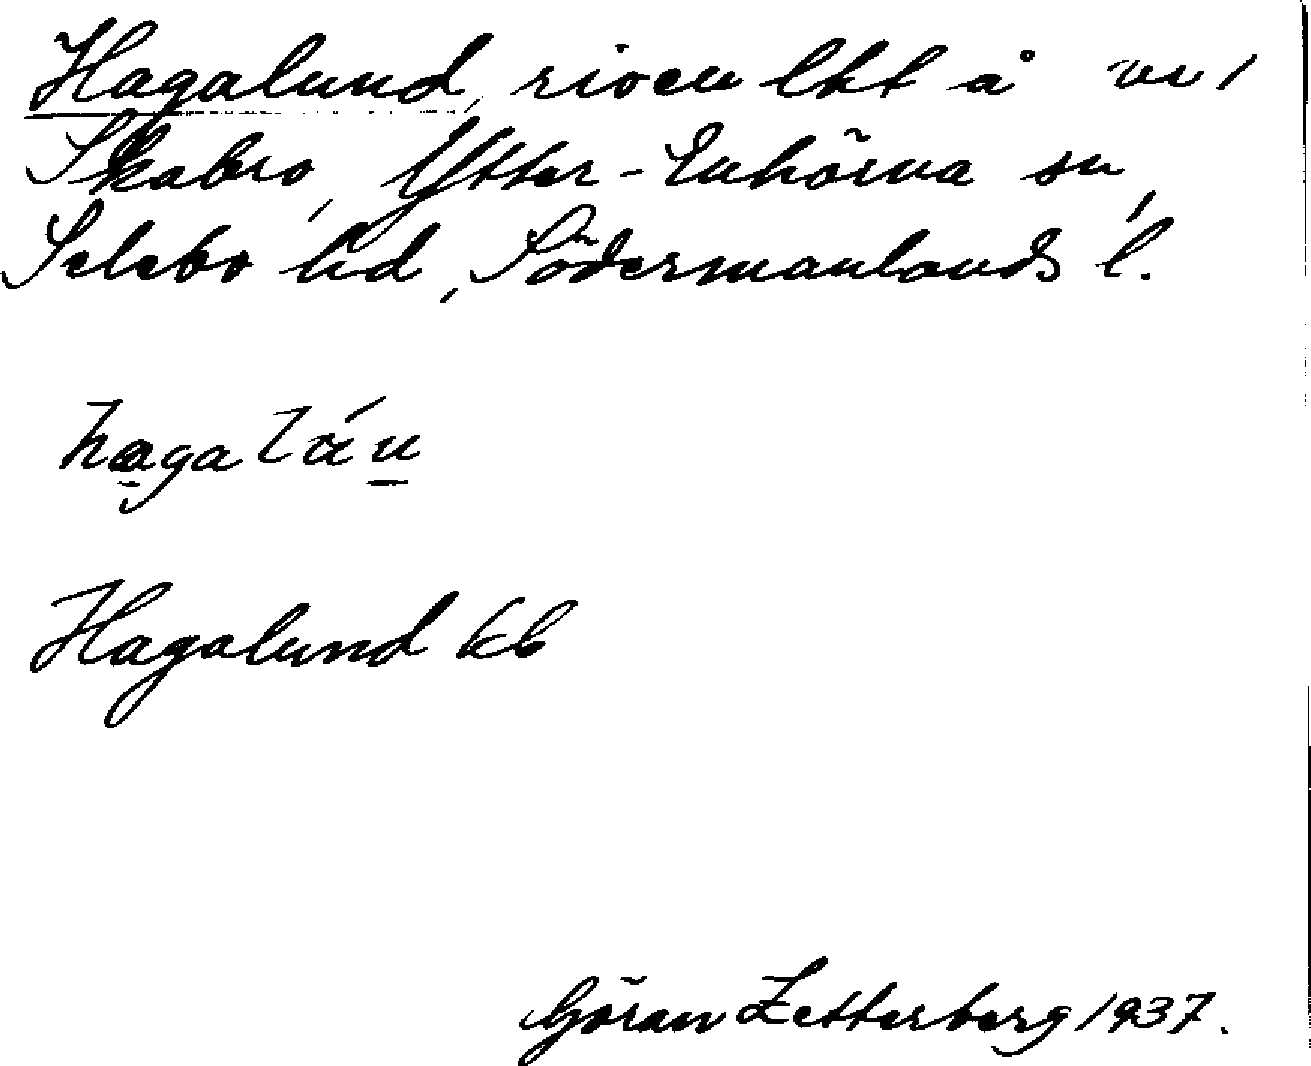 Hagalund, riven lht å nr 1
Skabro, Ytter-Enhörna sn,
Selebo hd, Södermanlands l.
hagalún
Hagalund kb
Göran Zetterberg 1937.